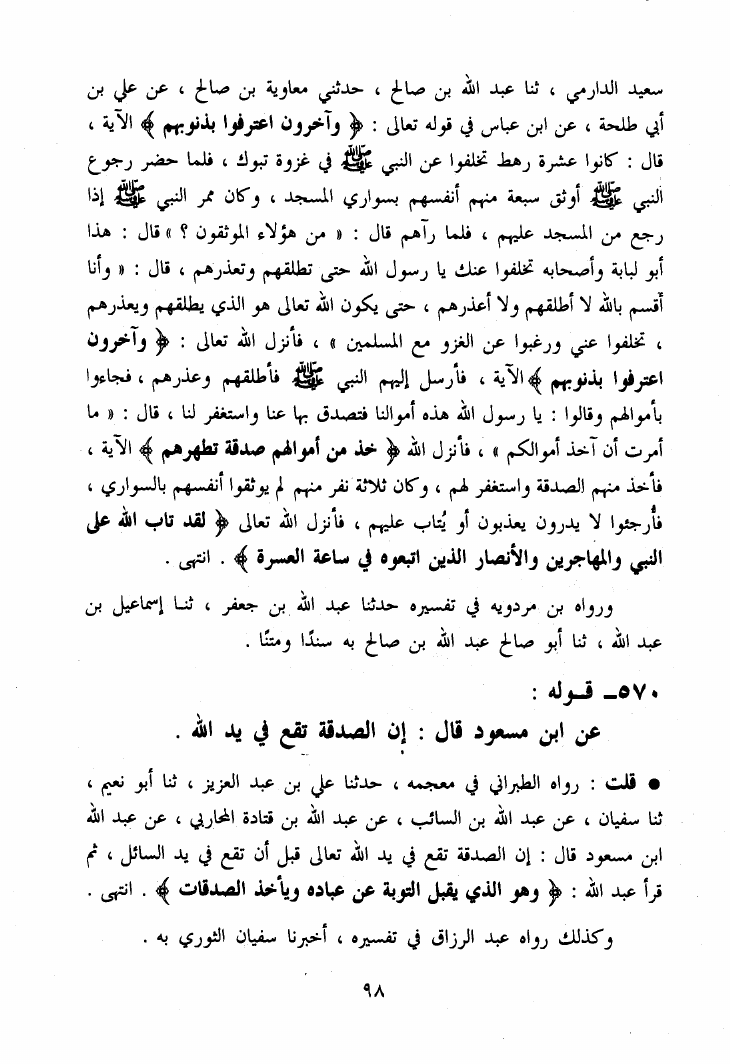 سعيد الدارمي ، ثنا عبد الله بن صالح ، حدثني معاوية بن صالح ، عن علي بن
أبي طلحة ، عن ابن عباس في قوله تعالى : ﴿ وآخرون اعترفوا بذنوبهم ﴾ الآية ،
قال : كانوا عشرة رهط تخلفوا عن النبي ﷺ في غزوة تبوك ، فلما حضر رجوع
النبي ﷺ أوثق سبعة منهم أنفسهم بسواري المسجد ، وكان ممر النبي ﷺ إذا
رجع من المسجد عليهم ، فلما رآهم قال : « من هؤلاء الموثقون ؟ » قال : هذا
أبو لبابة وأصحابه تخلفوا عنك يا رسول الله حتى تطلقهم وتعذرهم ، قال : « وأنا
أقسم بالله لا أطلقهم ولا أعذرهم ، حتى يكون الله تعالى هو الذي يطلقهم ويعذرهم
، تخلفوا عني ورغبوا عن الغزو مع المسلمين » ، فأنزل الله تعالى : ﴿ وآخرون
اعترفوا بذنوبهم ﴾ الآية ، فأرسل إليهم النبي ﷺ فأطلقهم وعذرهم ، فجاءوا
بأموالهم وقالوا : يا رسول الله هذه أموالنا فتصدق بها عنا واستغفر لنا ، قال : « ما
أمرت أن آخذ أموالكم » ، فأنزل الله ﴿ خذ من أموالهم صدقة تطهرهم ﴾ الآية ،
فأخذ منهم الصدقة واستغفر لهم ، وكان ثلاثة نفر منهم لم يوثقوا أنفسهم بالسواري ،
فأُرجئوا لا يدرون يعذبون أو يُتاب عليهم ، فأنزل الله تعالى ﴿ لقد تاب الله على
النبي والمهاجرين والأنصار الذين اتبعوه في ساعة العسرة ﴾ . انتهى .
ورواه بن مردويه في تفسيره حدثنا عبد الله بن جعفر ، ثنا إسماعيل بن
عبد الله ، ثنا أبو صالح عبد الله بن صالح به سندًا ومتنًا .
٥٧٠ـ قـوله :
عن ابن مسعود قال : إن الصدقة تقع في يد الله .
● قلت : رواه الطبراني في معجمه ، حدثنا علي بن عبد العزيز ، ثنا أبو نعيم ،
ثنا سفيان ، عن عبد الله بن السائب ، عن عبد الله بن قتادة المحاربي ، عن عبد الله
ابن مسعود قال : إن الصدقة تقع في يد الله تعالى قبل أن تقع في يد السائل ، ثم
قرأ عبد الله : ﴿ وهو الذي يقبل التوبة عن عباده ويأخذ الصدقات ﴾ . انتهى .
وكذلك رواه عبد الرزاق في تفسيره ، أخبرنا سفيان الثوري به .
٩٨